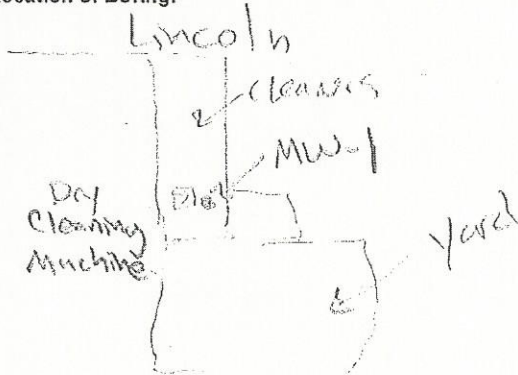 Location of Boring:
Lincoln
Cleaners
MW-1
Dry
Cleaning
Machine
Yard